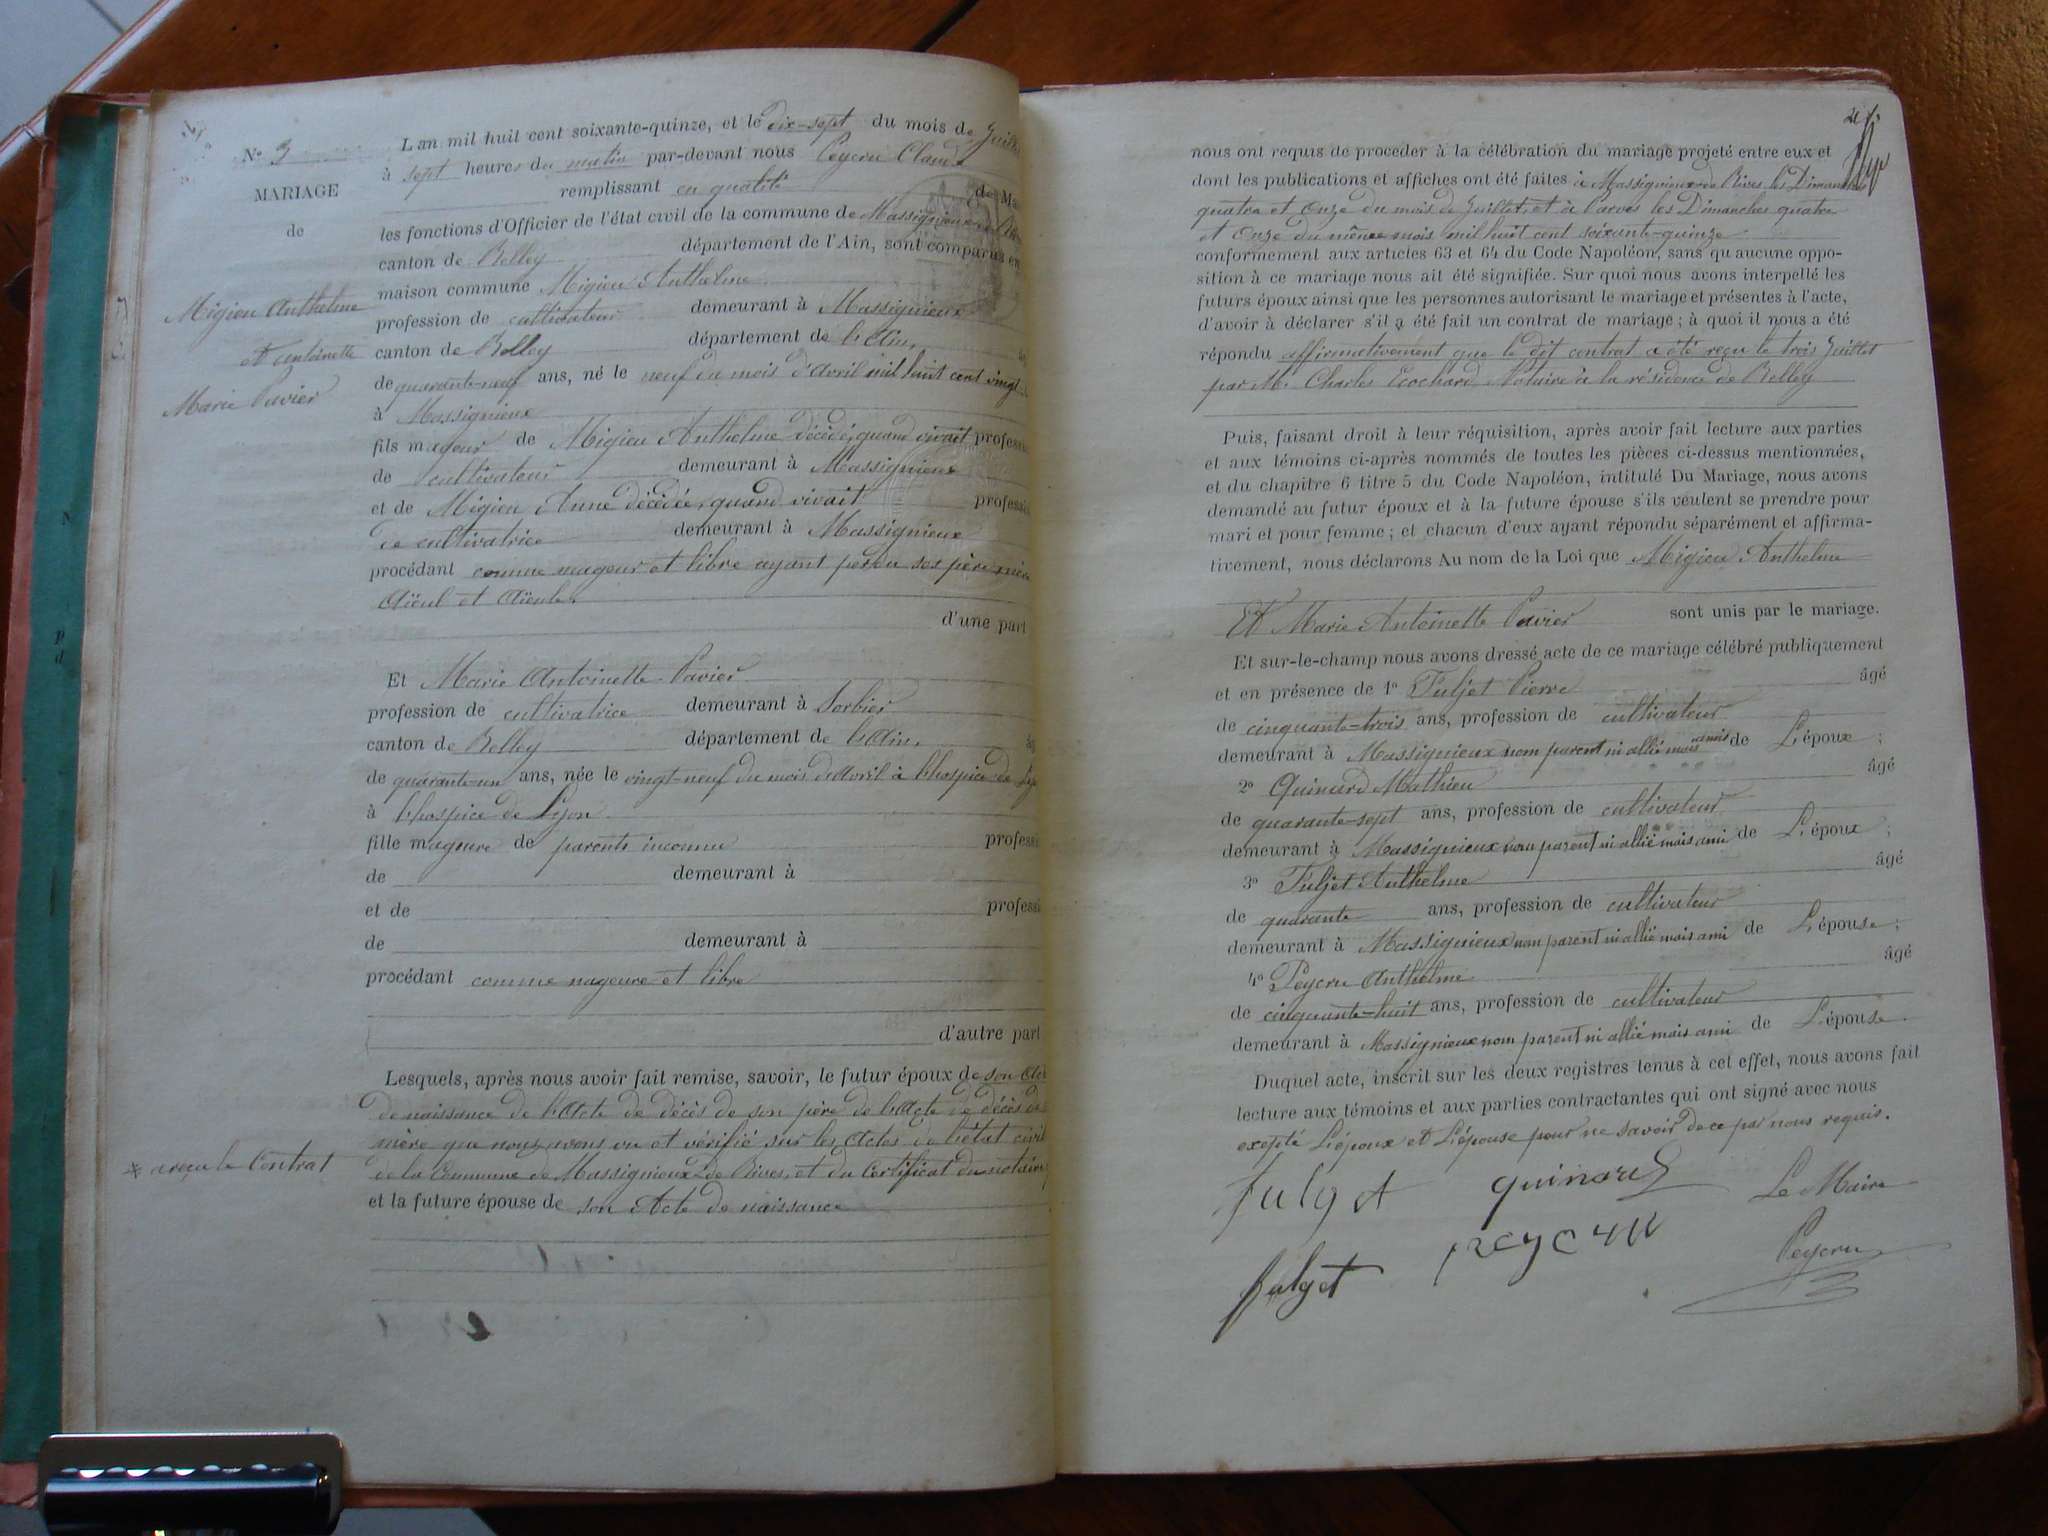 N° 3
MARIAGE
de
Migieu Anthelme
et antoinette
Marie Pavier
* a reçu le Contrat
L'an mil huit cent soixante-quinze, et le dix-sept du mois de Juillet
à sept heures du matin par-devant nous Peycru Claude
remplissant en qualité de Ma
les fonctions d'Officier de l'état civil de la commune de Massignieux de Rives
canton de Belley département de l'Ain, sont comparus en
maison commune Migieu Anthelme
profession de cultivateur demeurant à Massignieux
canton de Belley département de l'Ain,
de quarante-neuf ans, né le neuf du mois d'Avril mil huit cent vingt
à Massignieux
fils mageur de Migieu Anthelme décédé, quand vivait professi
de cultivateur demeurant à Massignieux
et de Migieu Anne décédée, quand vivait professi
de cultivatrice demeurant à Massignieux
procédant comme mageur et libre ayant perdu ses père mère
Aïeul et Aïeule.
d'une part
Et Marie Antoinette Pavier
profession de cultivatrice demeurant à Sorbier
canton de Belley département de l'Ain, âg
de quarante-un ans, née le vingt-neuf du mois d'Avril à l'hospice de Ly
à l'hospice de Lyon
fille mageure de parents inconnu professi
de demeurant à
et de professi
de demeurant à
procédant comme mageure et libre
d'autre part
Lesquels, après nous avoir fait remise, savoir, le futur époux de son Acte
de naissance de l'Acte de décès de son père de l'Acte de décès de
mère que nous avons vu et vérifié sur les Actes de l'état civil
de la Commune de Massignieux de Rives, et du Certificat du notaire
et la future épouse de son Acte de naissance
nous ont requis de procéder à la célébration du mariage projeté entre eux et
dont les publications et affiches ont été faites à Massignieux de Rives les Dimanches
quatre et Onze du mois de Juillet, et à Parves les Dimanches quatre
et Onze du même mois mil huit cent soixante-quinze
conformément aux articles 63 et 64 du Code Napoléon, sans qu'aucune oppo-
sition à ce mariage nous ait été signifiée. Sur quoi nous avons interpellé les
futurs époux ainsi que les personnes autorisant le mariage et présentes à l'acte,
d'avoir à déclarer s'il a été fait un contrat de mariage ; à quoi il nous a été
répondu affirmativement que le dit contrat a été reçu le trois Juillet
par M. Charles Ecochard Notaire à la résidence de Belley
Puis, faisant droit à leur réquisition, après avoir fait lecture aux parties
et aux témoins ci-après nommés de toutes les pièces ci-dessus mentionnées,
et du chapitre 6 titre 5 du Code Napoléon, intitulé Du Mariage, nous avons
demandé au futur époux et à la future épouse s'ils veulent se prendre pour
mari et pour femme ; et chacun d'eux ayant répondu séparément et affirma-
tivement, nous déclarons Au nom de la Loi que Migieu Anthelme
Et Marie Antoinette Pavier sont unis par le mariage.
Et sur-le-champ nous avons dressé acte de ce mariage célébré publiquement
et en présence de 1° Fuljet Pierre âgé
de cinquante-trois ans, profession de cultivateur
demeurant à Massignieux nom parent ni allié mais amis de L'époux ;
2° Quinard Mathieu âgé
de quarante-sept ans, profession de cultivateur
demeurant à Massignieux nom parent ni allié mais ami de L'époux ;
3° Fuljet Anthelme âgé
de quarante ans, profession de cultivateur
demeurant à Massignieux nom parent ni allié mais ami de L'épouse ;
4° Peycru Anthelme âgé
de cinquante-huit ans, profession de cultivateur
demeurant à Massignieux nom parent ni allié mais ami de L'épouse.
Duquel acte, inscrit sur les deux registres tenus à cet effet, nous avons fait
lecture aux témoins et aux parties contractantes qui ont signé avec nous
excepté L'époux et L'épouse pour ne savoir de ce par nous requis.
fulget quinard Le Maire
fulget peycru Peycru